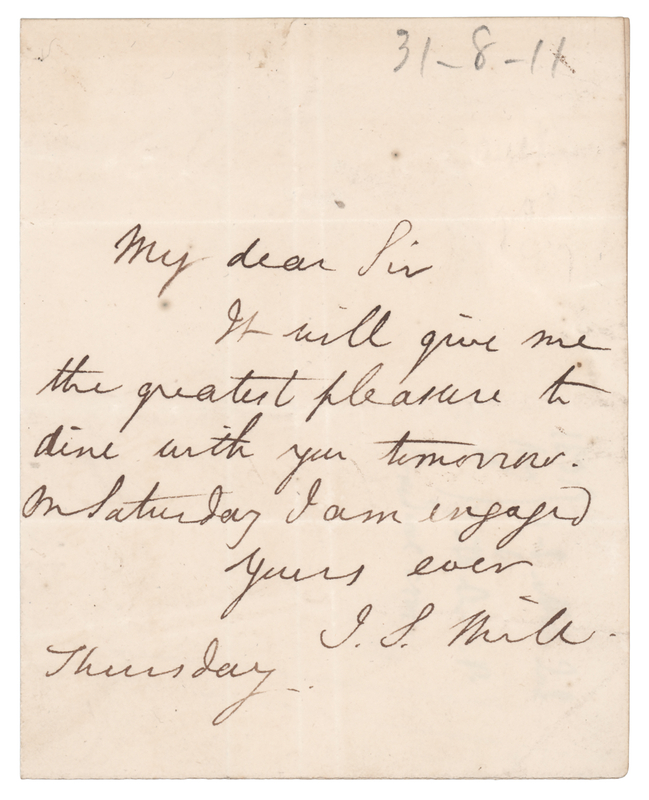 31-8-11
My dear Sir
It will give me
the greatest pleasure to
dine with you tomorrow.
On Saturday I am engaged
Yours ever
J. S. Mill.
Thursday.